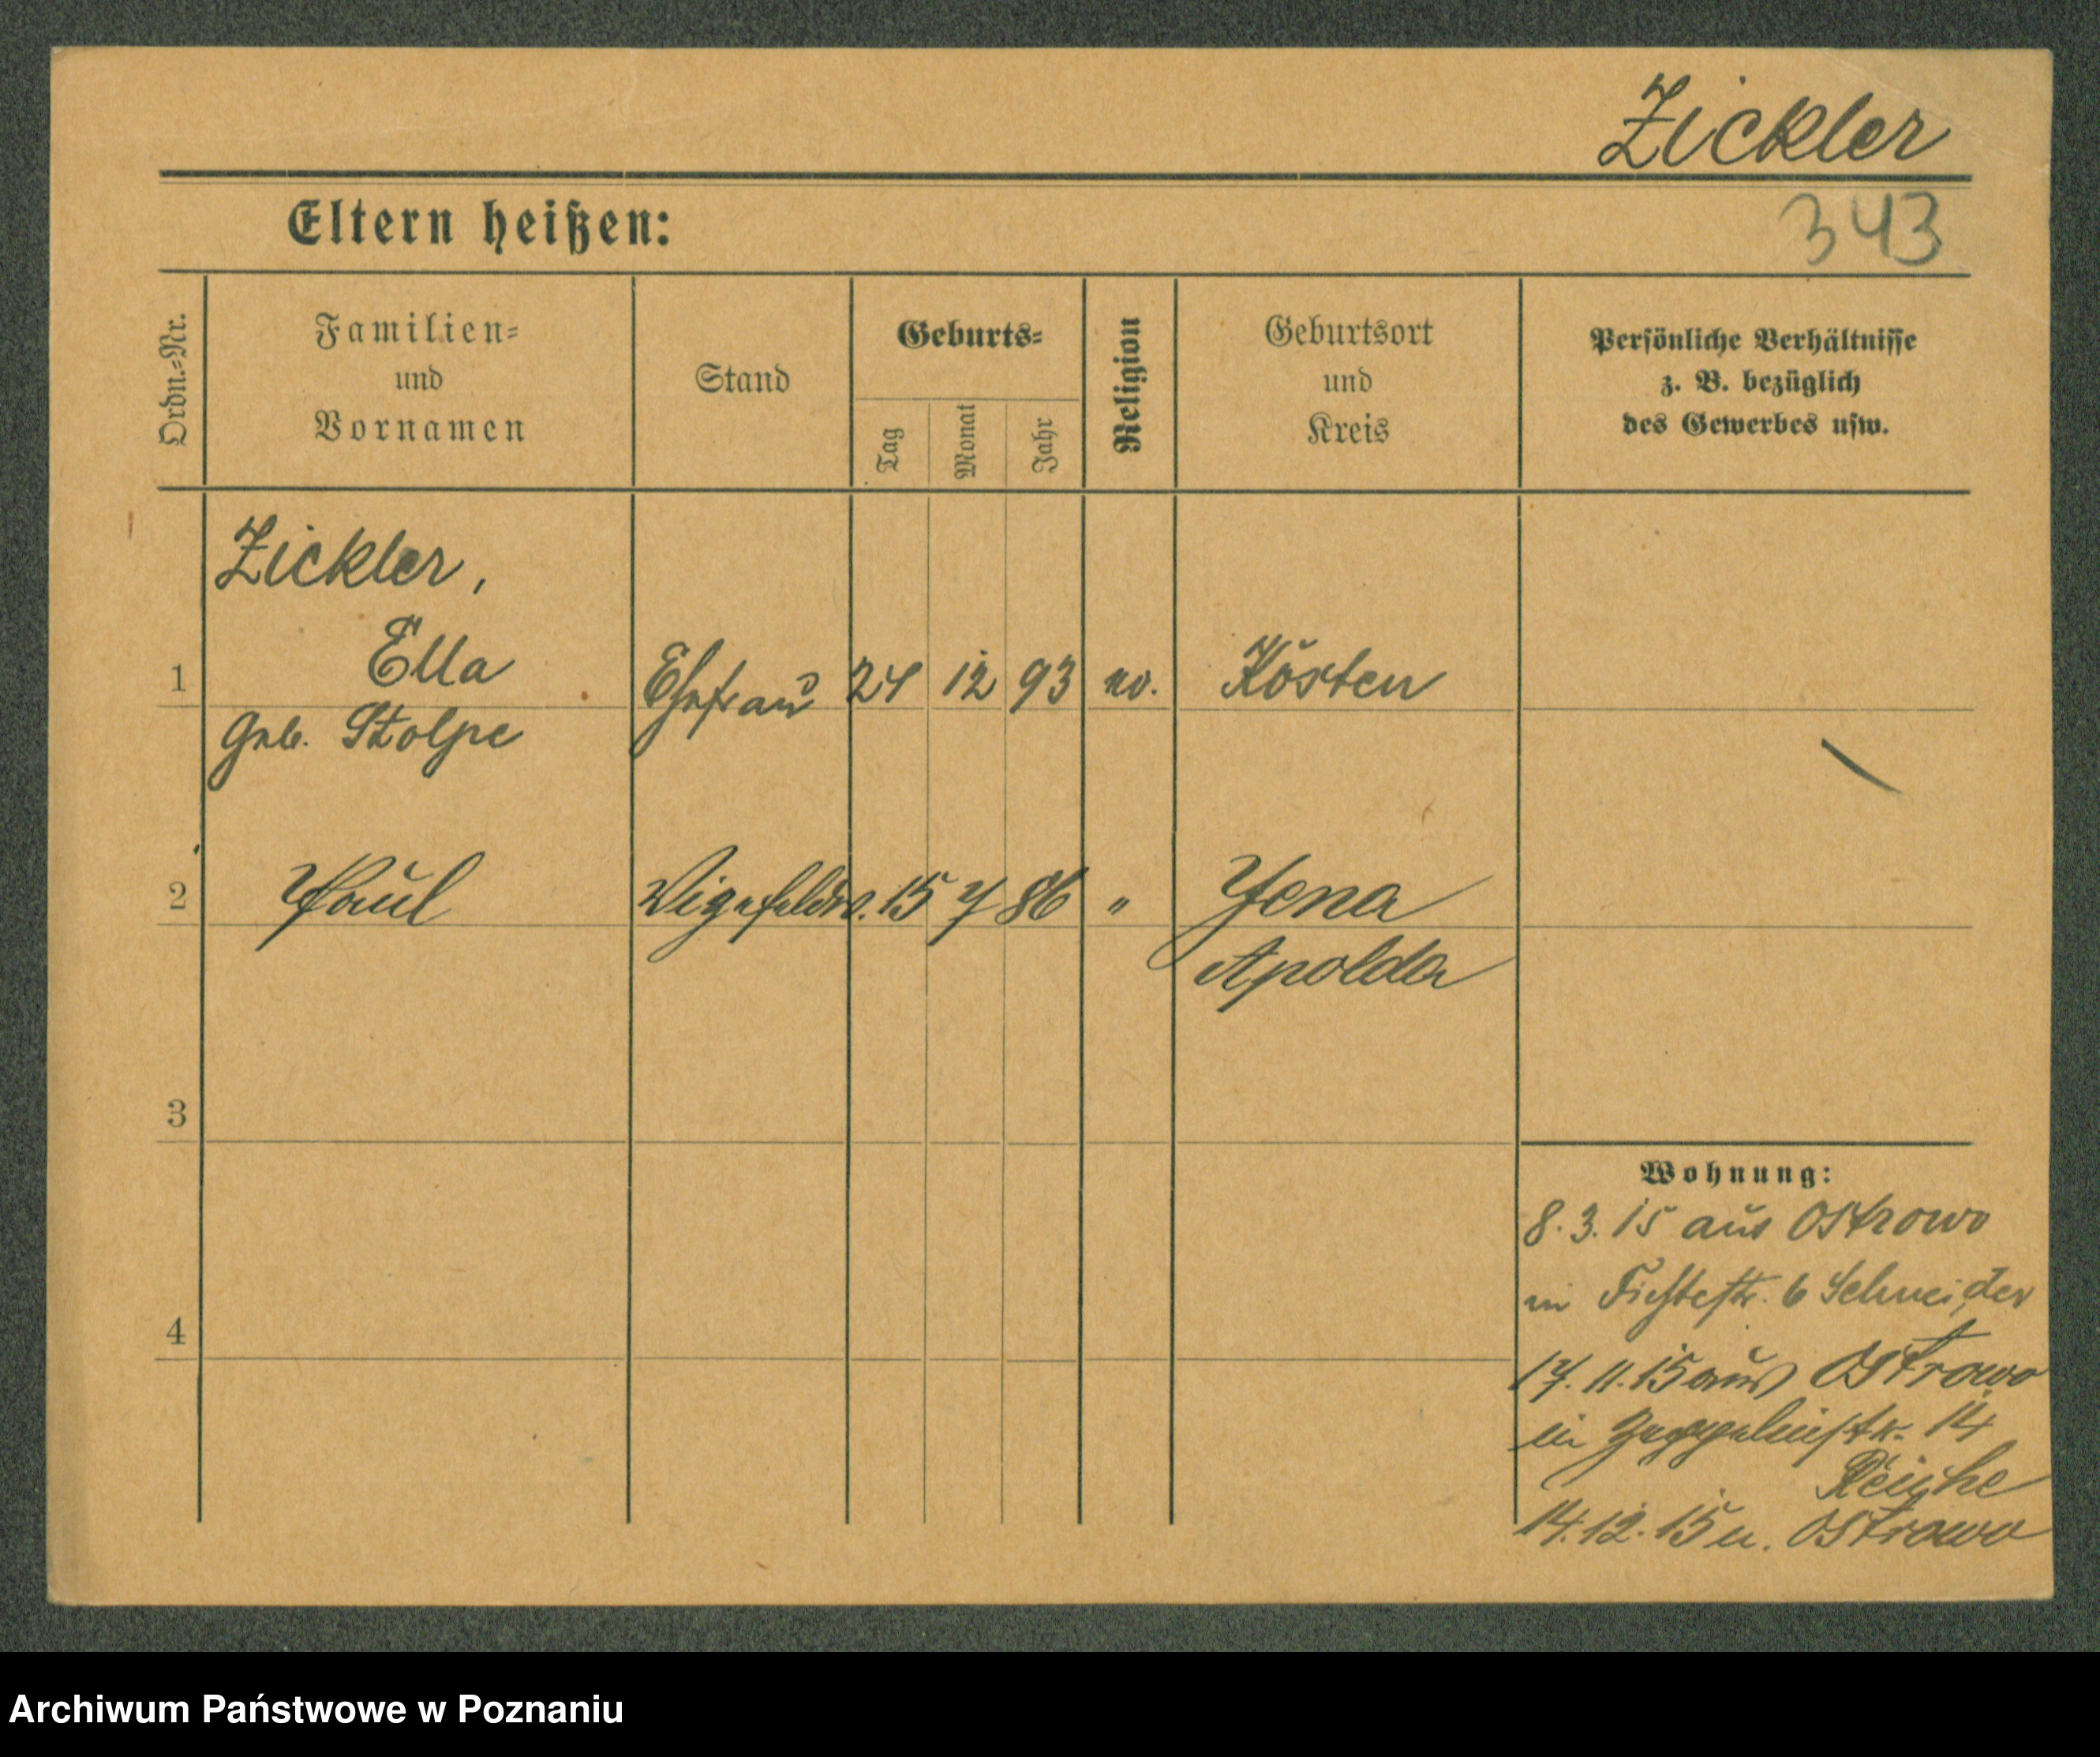 Zickler
Eltern heißen:
343
Ordn.-Nr.
Familien-
und
Vornamen
Stand
Geburts-
Tag
Monat
Jahr
Religion
Geburtsort
und
Kreis
Persönliche Verhältnisse
z. B. bezüglich
des Gewerbes usw.
Zickler,
1 Ella Ehefrau 24 12 93 ev. Kösten
geb. Stolpe
2 Paul Vizefeldw. 15 7 86 " Jena
Apolda
3
Wohnung:
8. 3. 15 aus Ostrowo
in Fichtestr. 6 Schneider
4
17. 11. 15 aus Ostrowo
in Zeppelinstr. 14
Reiche
14. 12. 15 n. Ostrowo
Archiwum Państwowe w Poznaniu